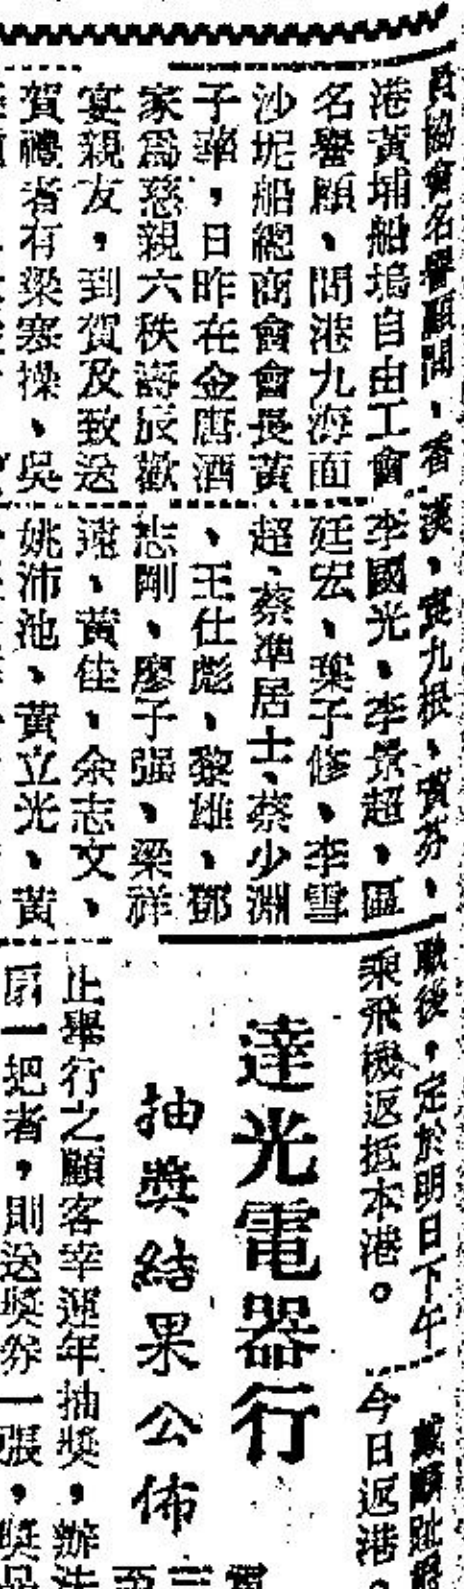 員協會名譽顧問、香
港黃埔船塢自由工會
名譽顧、問港九海面
沙坭船總商會會長黃
子華，日昨在金唐酒
家爲慈親六秩壽辰歡
宴親友，到賀及致送
賀禮者有梁寒操、吳
漢、九根、黃芬、
李國光、李景超、區
廷宏、葉子修、李雪
超、蔡準居士、蔡少淵
、王仕彪、黎雄、鄧
志剛、廖子强、梁祥
遠、黃佳、余志文、
姚沛池、黃立光、黃
職後，定於明日下午
乘飛機返抵本港。
戴麟趾
今日返港，
達光電器行
抽獎結果公佈
止舉行之顧客幸運年抽獎，辦法
扇一把者，則送獎券一張，獎品